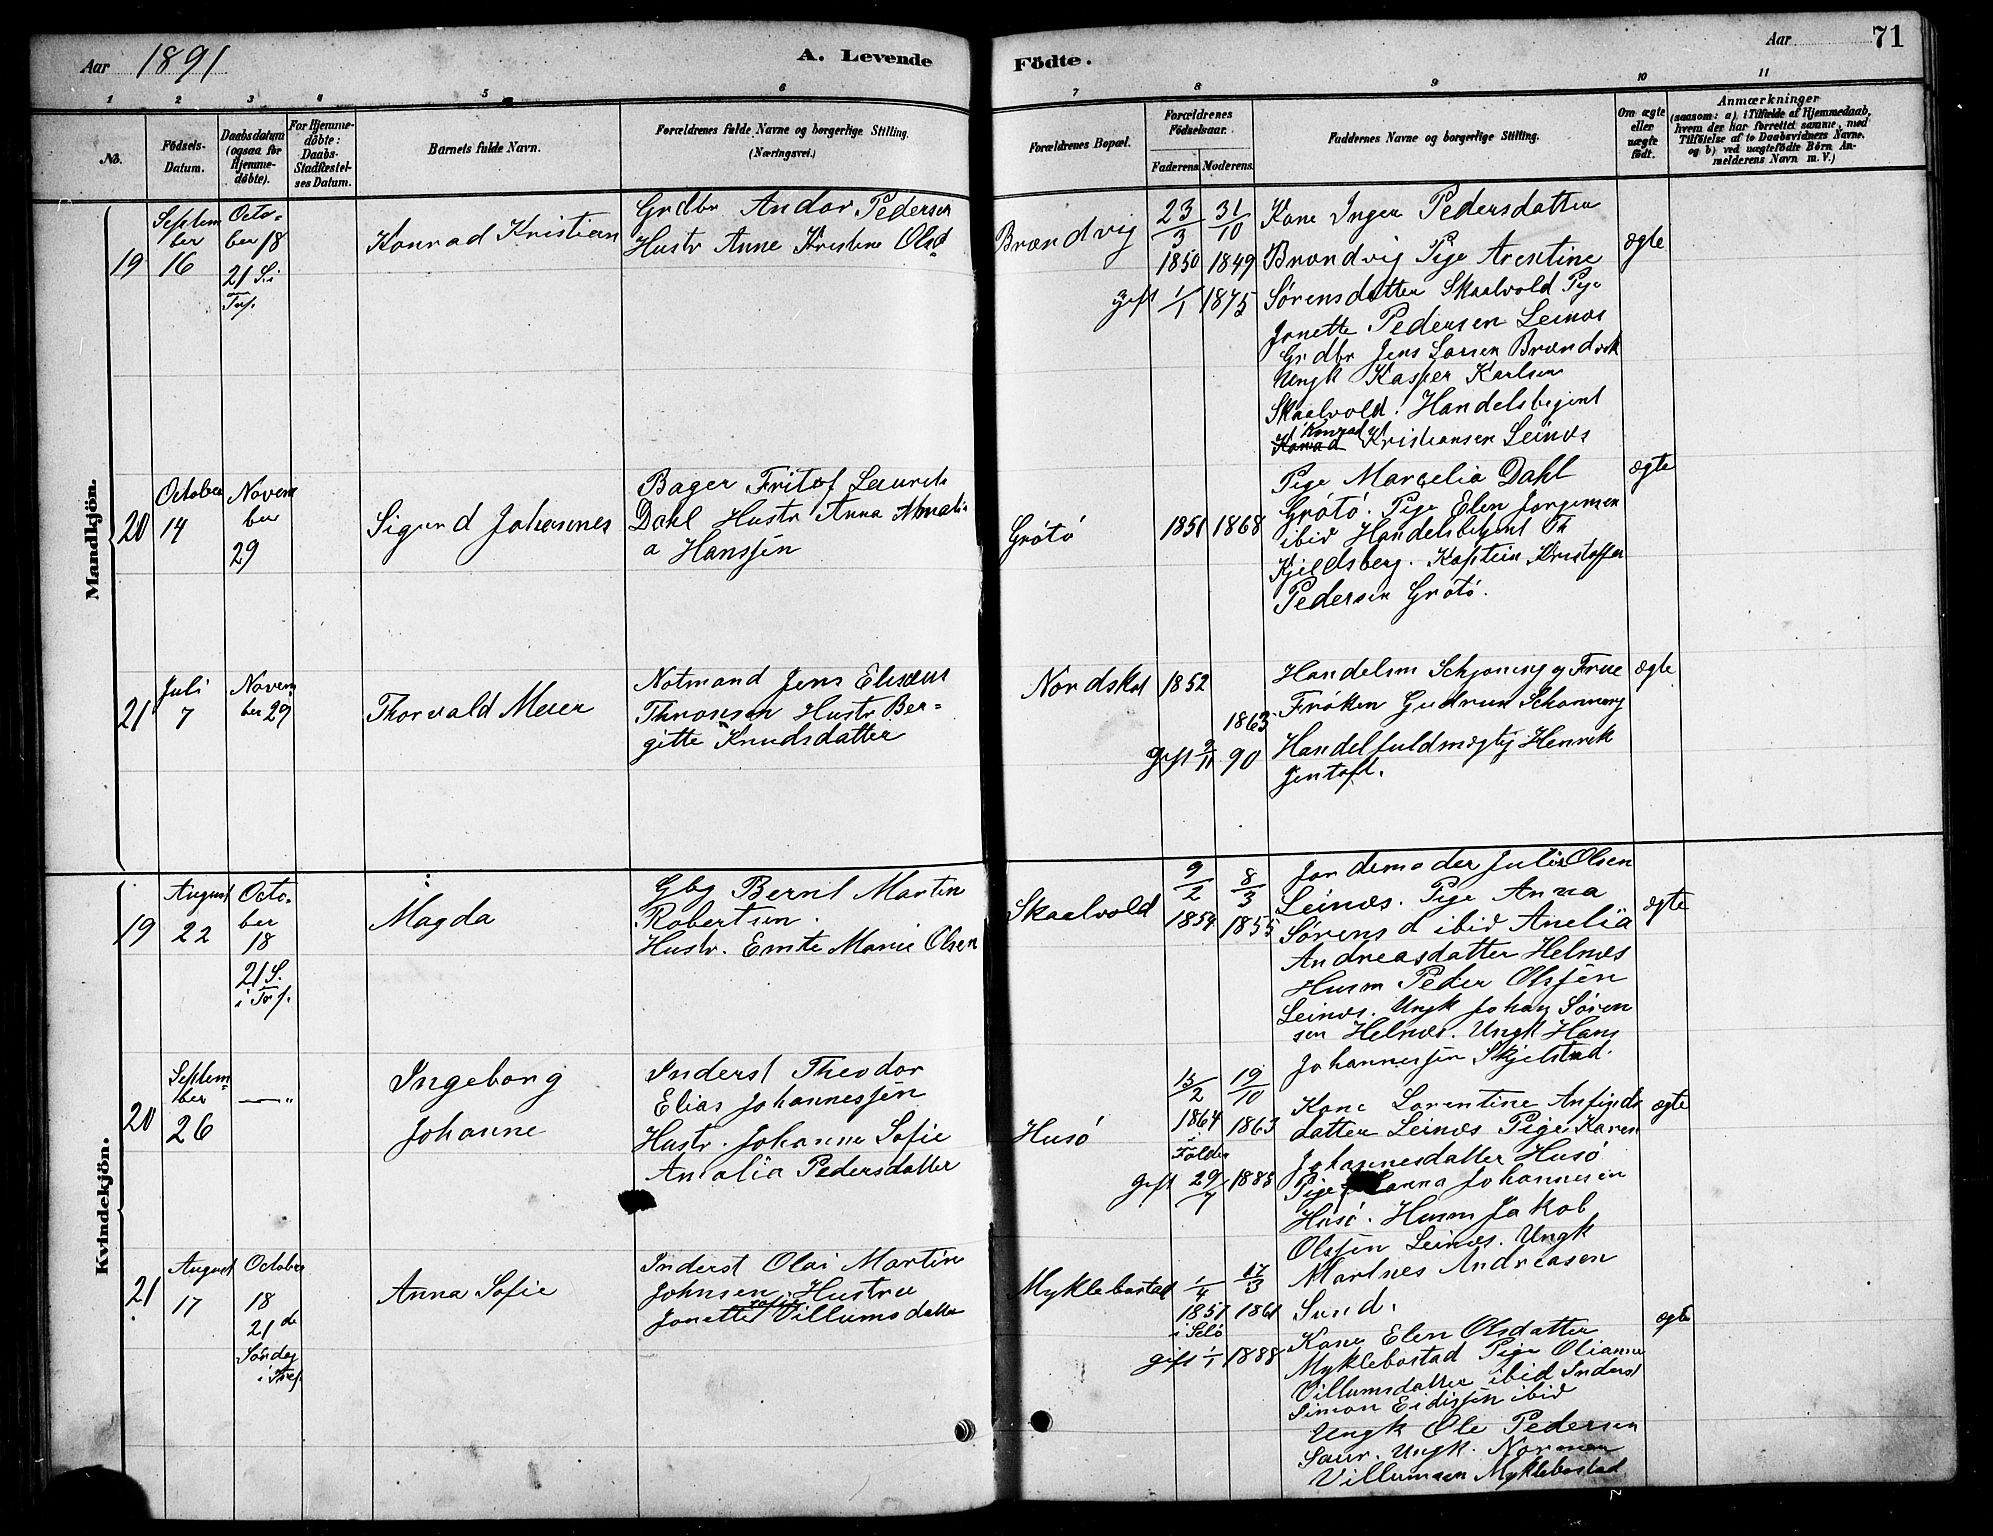 Aar 1891
A. Levende
Födte.
Aar
71
1 2 3 4 5 6 7 8 9 10 11
No.
Födsels-
Datum.
Daabsdatum
(ogsaa for
Hjemme-
døbte).
For Hjemme-
døbte:
Daabs-
Stadfæstel-
ses Datum.
Barnets fulde Navn.
Forældrenes fulde Navne og borgerlige Stilling.
(Næringsvei.)
Forældrenes Bopæl.
Forældrenes
Födselsaar.
Faderens. Moderens.
Faddernes Navne og borgerlige Stilling.
Om ægte
eller
uægte
født.
Anmærkninger
(saasom: a) i Tilfælde af Hjemmedaab,
hvem der har forrettet samme, med
Tilføielse af to Daabsvidners Navne,
og b) ved uægtefödte Börn An-
melderens Navn m. V.)
Mandkjön.
19
Septem
ber
16
Octo-
ber 18
21 S i
Tref.
Konrad Kristian
Grdbr Andor Pedersen
Hustr Anne Kristine Olsd
Brændvig
23/3
1850
31/10
1849
gift 1/1 1875
Kone Inger Pedersdatter
Brændvig Pige Arentine
Sørensdatter Skaalvold Pige
Jonette Pedersen Leines
Grdbr Jens Larsen Brændvik
Ungk Kasper Karlsen
Skaalvold. Handelsbetjent
Konrad
Kristiansen Leines
ægte
20
October
14
Novem
ber
29
Sigurd Johannes
Bager Fritof Laurits
Dahl Hustr Anna Amali-
a Hanssen
Grøtø
1851
1868
Pige Marselia Dahl
Grøtø. Pige Elen Jørgensen
ibid Handelsbetjent Th
Kjeldsberg. Kaptein Kristoffer
Pedersen Grøtø.
ægte
21
Juli
7
Novem
ber 29
Thorvald Meier
Notmand Jens Elisæus
Thronsen Hustr Ber-
gitte Knudsdatter
Nordskot
1852
1863
gift 2/11 90
Handelsm Schjøning og Frue
Frøken Gudrun Schønning
Handelfuldmægtig Henrik
Jentoft.
ægte
Kvindekjön.
19
August
22
Octo-
ber
18
21 S.
i Tref.
Magda
Gbg Bernt Martin
Robertsen.
Hustr. Emte Marie Olsen
Skaalvold
9/2
1854
8/3
1855
Jordemoder Julie Olsen
Leines. Pige Anna
Sørensd ibid Anelia
Andreasdatter Helnes
Husm Peder Olssen
Leines. Ungk Johan Søren
sen Helnes. Ungk Hans
Johannessen Skjelstad.
ægte
20
Septem
ber
26
— „
Ingeborg
Johanne
Inderst Theodor
Elias Johannessen
Hustr. Johanne Sofie
Amalia Pedersdatter
Husø
15/2
1864
i
Folden
19/10
1863
gift 29/7 1888
Kone Lorentine Anfinds
datter Leines Pige Karen
Johannesdatter Husø
Pige Hanna Johannesen
Husø. Husm Jakob
Olssen Leines. Ungk
Martnes Andreasen
Sund.
ægte
21
August
17
October
18
21 de
Søndag
i Tref.
Anna Sofie
Inderst Olai Martin
Johnsen. Hustru
Jonette Sofie Villumsdatter
Myklebostad
1/4
1857
i Selø
17/3
1861
gift 1/1 1888
Kone Elen Olsdatter
Myklebostad Pige Olianne
Villumsdatter ibid Inderst
Simon Eidissen ibid
Ungk Ole Pedersen
Saur. Ungk. Norman
Villumsen Myklebostad
ægte